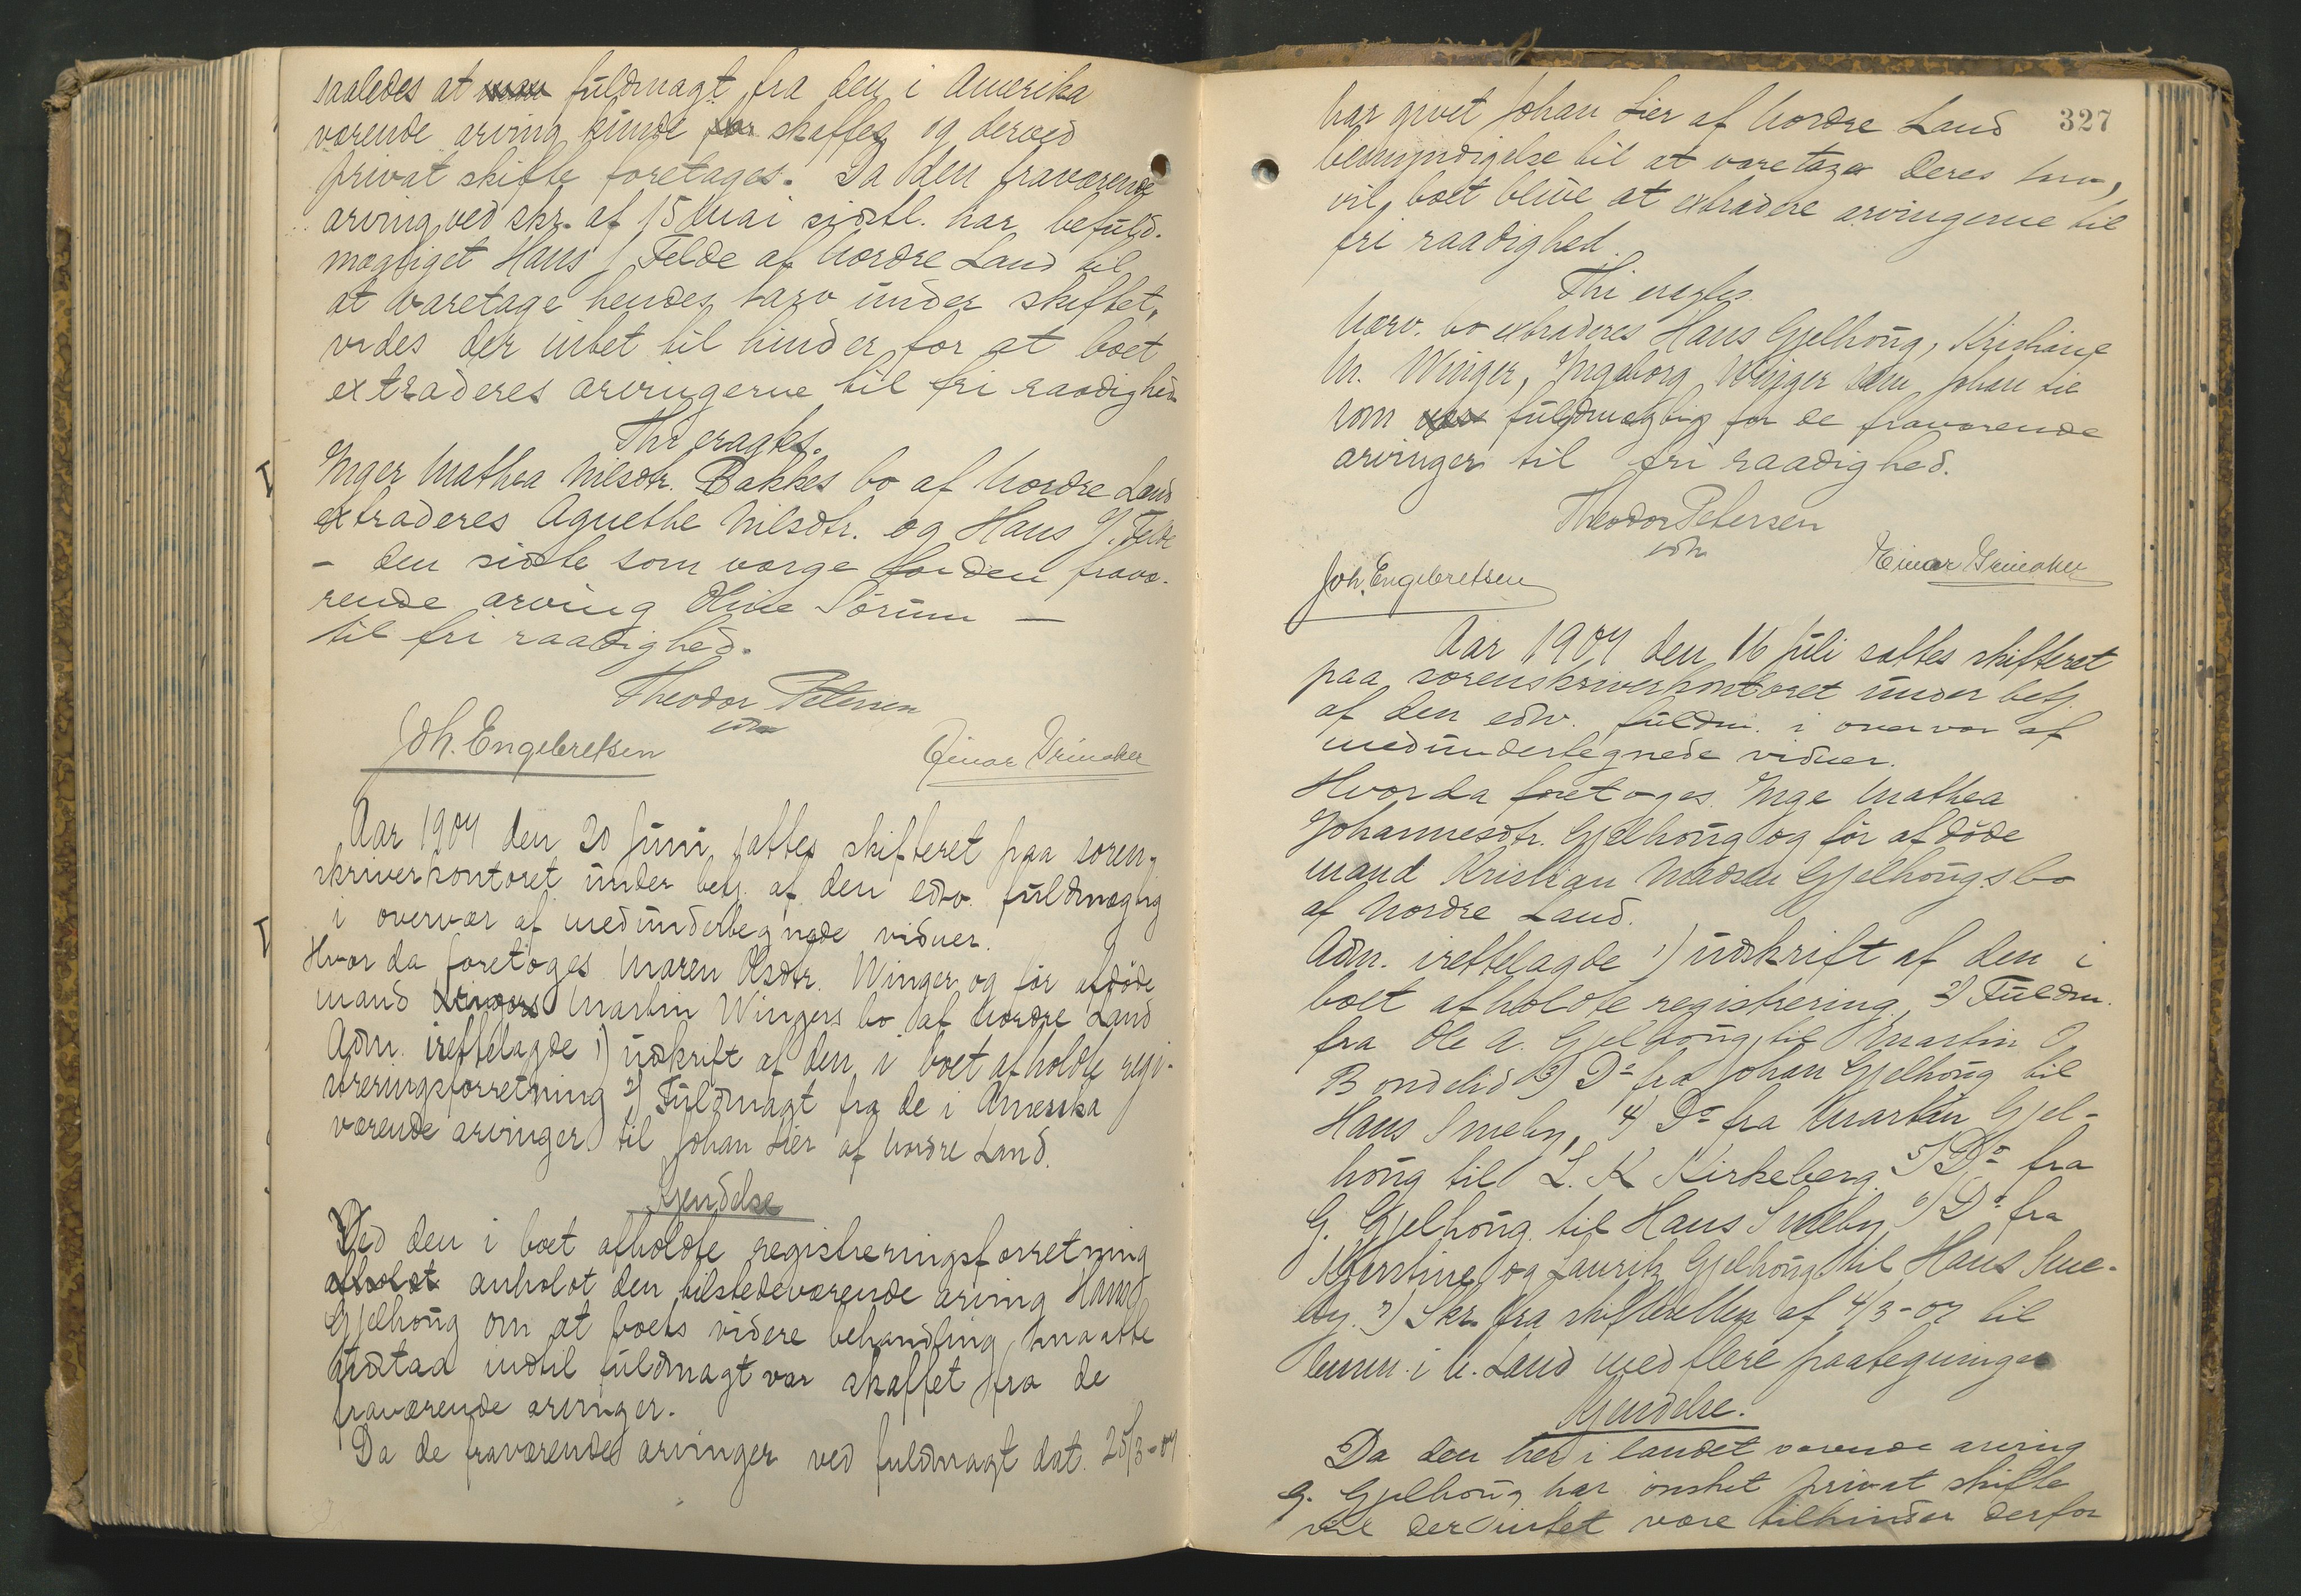 saaledes at man fuldmagt fra den i Amerika
værende arving kunde for skaffes og derved
privat skifte foretages. Da den fraværende
arving ved skr. af 15 Mai sidstl. har befuld-
mægtiget Hans J. Felde af Nordre Land til
at varetage hendes tarv under skiftet,
vides der intet til hinder for at boet
extraderes arvingerne til fri raadighed
Thi eragtes.
Inger Mathea Nilsdtr. Bakkes bo af Nordre Land
extraderes Agnethe Nilsdtr. og Hans J. Felde
- den sidste som værge for den fravæ-
rende arving Oline Sörum -
til fri raadighed.
Theodor Petersen
edv
Joh. Engebretsen
Einar Grinaker
Aar 1907 den 20 Juni sattes skifteret paa soren-
skriverkontoret under best. af den edsv. fuldmægtig
i overvær af medundertegnede vidner.
Hvor da foretoges Maren Olsdtr. Winger og før afdöde
mand Martin Wingers bo af Nordre Land
Adm. irettelagde 1) udskrift af den i boet afholdte regi-
streringsforretning 2) Fuldmagt fra de i Amerika
værende arvinger til Johan Lier af Nordre Land.
Kjendelse
Ved den i boet afholdte registreringsforretning
afholdt anholdt den tilstedeværende arving Hans
Gjelhoug om at boets videre behandling maatte
udstaa indtil fuldmagt var skaffet fra de
fraværende arvinger.
Da de fraværende arvinger ved fuldmagt dat. 25/3-07
327
har givet Johan Lier af Nordre Land
bemyndigelse til at varetage deres tarv,
vil boet blive at extradere arvingerne til
fri raadighed.
Thi eragtes
Nærv. bo extraderes Hans Gjelhoug, Kristiane
M. Winger, Ingeborg Winger samt Johan Lie
som fuldmægtig for de fraværende
arvinger til fri raadighed.
Theodor Petersen
edv
Joh. Engebretsen
Einar Grinaker
Aar 1907 den 16 Juli sattes skifteret
paa sorenskriverkontoret under best.
af den edsv. fuldm. i overvær af
medundertegnede vidner.
Hvor da foretoges Inge Mathea
Johannesdtr. Gjelhoug og før afdöde
mand Kristian Madsen Gjelhougs bo
af Nordre Land.
Adm. irettelagde 1) udskrift af den i
boet afholdte registrering, 2) Fuldm.
fra Ole A. Gjelhoug til Martin O.
Bondelid 3) Do fra Johan Gjelhoug til
Hans Smeby, 4) Do fra Martin Gjel-
houg til L. K Kirkeberg 5) Do fra
G. Gjelhoug til Hans Smeby 6) Do fra
Kjerstine og Laurits Gjelhoug til Hans Sme-
by. 7) Skr. fra skifteretten af 4/3-07 til
lensm. i N. Land med flere paategninger
Kjendelse.
Da den her i landet værende arving
G. Gjelhoug har önsket privat skifte
vil der intet være tilhinder derfor